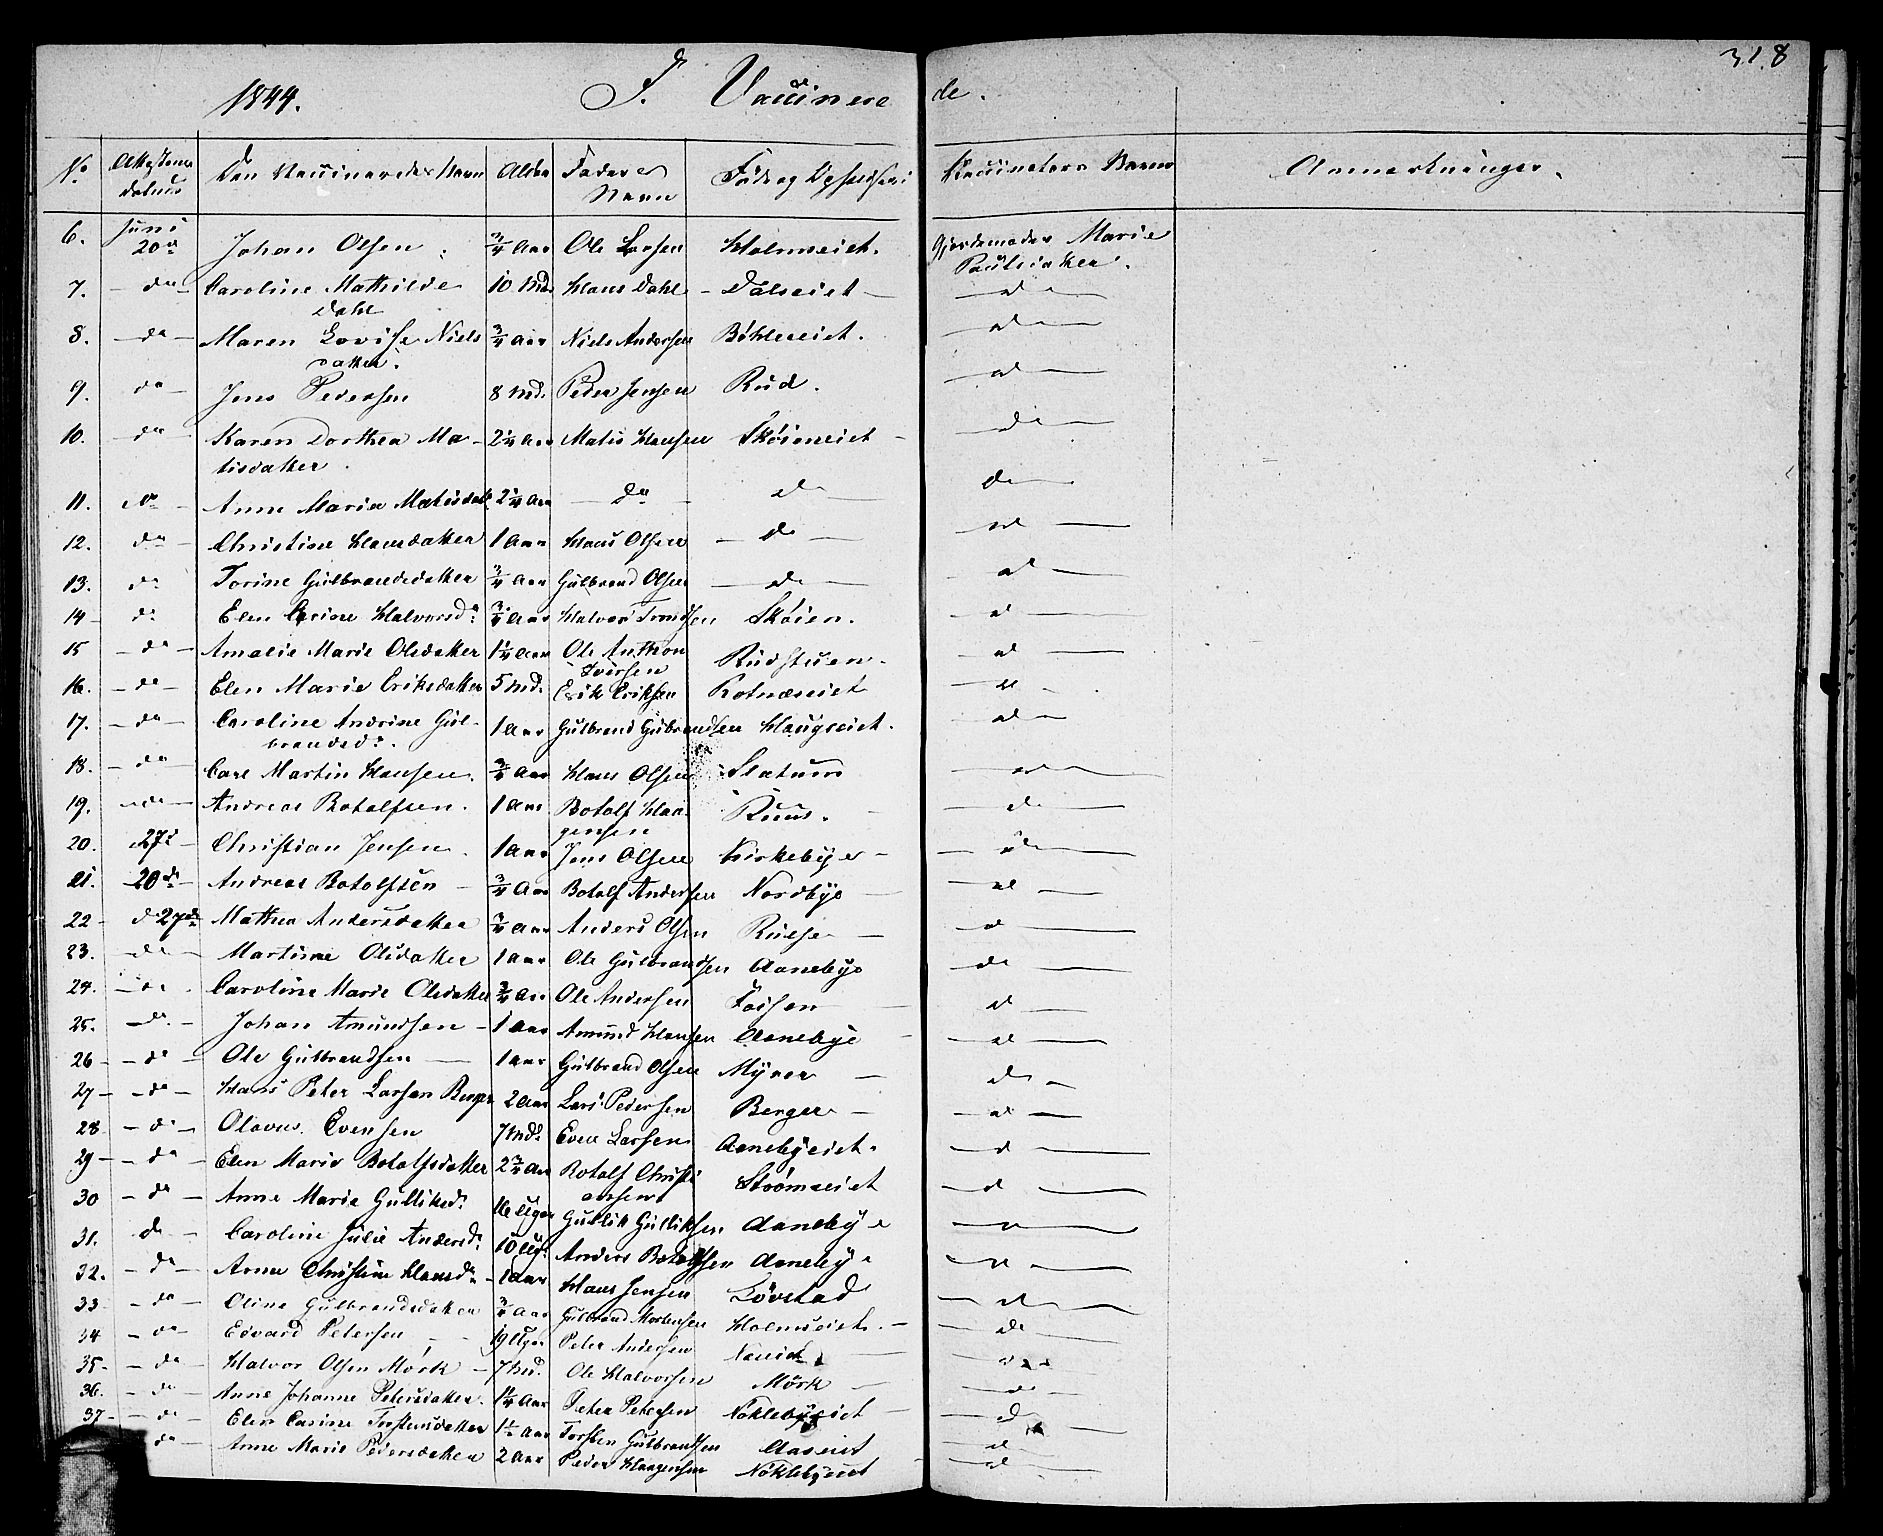 318
1844. F. Vaccinere de.
No Attestens datum Den Vaccineredes Navn Alder Faders Navn Føde og Opholdssted Vaccinateurs Navn Anmærkninger.
6. Juni 20de Johan Olsen 3/4 Aar Ole Larsen Holmseiet. Gjordemoder Marie Paulsdatter.
7. do Caroline Mathilde Dahl 10 Md. Hans Dahl Dalseiet do
8. do Maren Lovise Nielsdatter. 3/4 Aar Niels Andersen Böhlereiet. do
9. do Jens Pedersen 8 Md. Peder Jensen Rud. do
10. do Karen Dorthea Matisdatter. 2 1/4 Aar Matis Hansen Skøieneiet do
11. do Anne Maria Matisdatt. 2 1/4 Aar do do do
12. do Christine Hansdatter 1 Aar Hans Olsen do do
13. do Torine Gulbrandsdatter 3/4 Aar Gulbrand Olsen do do
14 do Elen Carine Halvorsd. 3/4 Aar Halvor Trondsen Skøien. do
15 do Amalie Marie Olsdatter 1 1/4 Aar Ole Anthon Iversen Rudstuen. do
16. do Elen Marie Eriksdatter 5 Md. Erik Eriksen Rotnæseiet do
17. do Caroline Andrine Gulbrandsd. 1 Aar Gulbrand Gulbrandsen Haugseiet. do
18. do Carl Martin Hansen. 3/4 Aar Hans Olsen Slatum do
19. do Andreas Botolfsen. 1 Aar Botolf Haagensen Ruus. do
20. 27de Christian Jensen. 1 Aar Jens Olsen Kirkebye do
21. 20de Andreas Botolfsen 3/4 Aar Botolf Andersen Nordbye do
22 27de Mathea Andersdatter 3/4 Aar Anders Olsen do
23. do Martine Olsdatter 1 Aar Ole Gulbrandsen Aanebye do
24. do Caroline Marie Olsdatter 3/4 Aar Ole Andersen do
25. do Johan Amundsen 1 Aar Amund Hansen Aanebye do
26 do Ole Gulbrandsen 1 Aar Gulbrand Olsen Myrer do
27 do Hans Peter Larsen Berger 2 Aar Lars Pedersen Berger do
28 do Olavus Evensen 7 Md. Even Larsen Aanebyeiet. do
29 do Elen Marie Botolfsdatter 2 3/4 Aar Botolf Christiansen Strømseiet do
30 do Anne Marie Gulliksd. 16 Uger Gullik Gulliksen Aanebye do
31. do Caroline Julie Andersd. 10 Ug. Anders Botolfsen Aanebye do
32. do Anne Christine Hansd. 1 Aar Hans Jensen Løvstad do
33 do Oline Gulbrandsdatter 3/4 Aar Gulbrand Mortensen Holmseiet. do
34 do Edvard Petersen 19 Uger Peter Andersen do
35 do Halvor Olsen Mörk 7 Md. Ole Halvorsen Mörk do
36. do Anne Johanne Petersdatter. 1 1/4 Aar Peter Petersen Nöklebyeiet do
37 do Elen Carine Torstensdatter 1 1/2 Aar Torsten Gulbrandsen Aaseiet do
do Anne Marie Pedersdatter 2 Aar Peder Haagensen Nöklebyeiet do